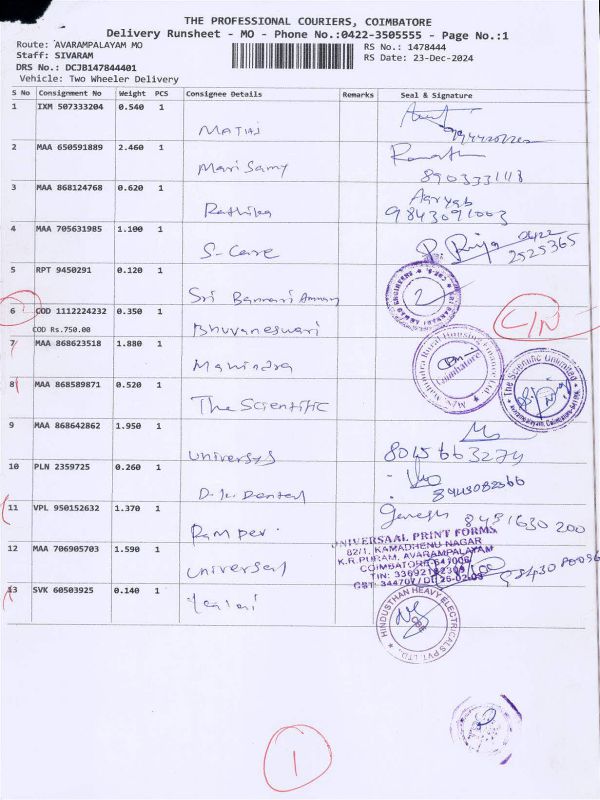 THE PROFESSIONAL COURIERS, COIMBATORE
Delivery Runsheet - MO - Phone No.:0422-3505555 - Page No.:1
Route: AVARAMPALAYAM MO
RS No.: 1478444
Staff: SIVARAM
RS Date: 23-Dec-2024
DRS No.: DCJB147844401
Vehicle: Two Wheeler Delivery
S No Consignment No Weight PCS Consignee Details Remarks Seal & Signature
1 IXM 507333204 0.540 1
MATHI
2 MAA 650591889 2.460 1
Mari Samy
890333111
3 MAA 868124768 0.620 1
Rathika
Aaryab
9843091003
4 MAA 705631985 1.100 1
S-Care
P. Priya 0422
2525365
5 RPT 9450291 0.120 1
Sri Bannari Amman
6 COD 1112224232 0.350 1
COD Rs.750.00
Bhuvaneswari
C/N
7 MAA 868623518 1.880 1
Mahindra
8 MAA 868589871 0.520 1
The Scientific
The Scientific Unlimited
9 MAA 868642862 1.950 1
Universys
8015663274
10 PLN 2359725 0.260 1
D.K. Dental
8943082366
11 VPL 950152632 1.370 1
Ramper
Ganesh 8491630 200
12 MAA 706905703 1.590 1
Universal
UNIVERSAAL PRINT FORMS
82/1, KAMADHENU NAGAR
K.R.PURAM, AVARAMPALAYAM
COIMBATORE-641006
13 SVK 60503925 0.140 1
HINDUSTHAN HEAVY ELECTRICALS PVT. LTD.,
1